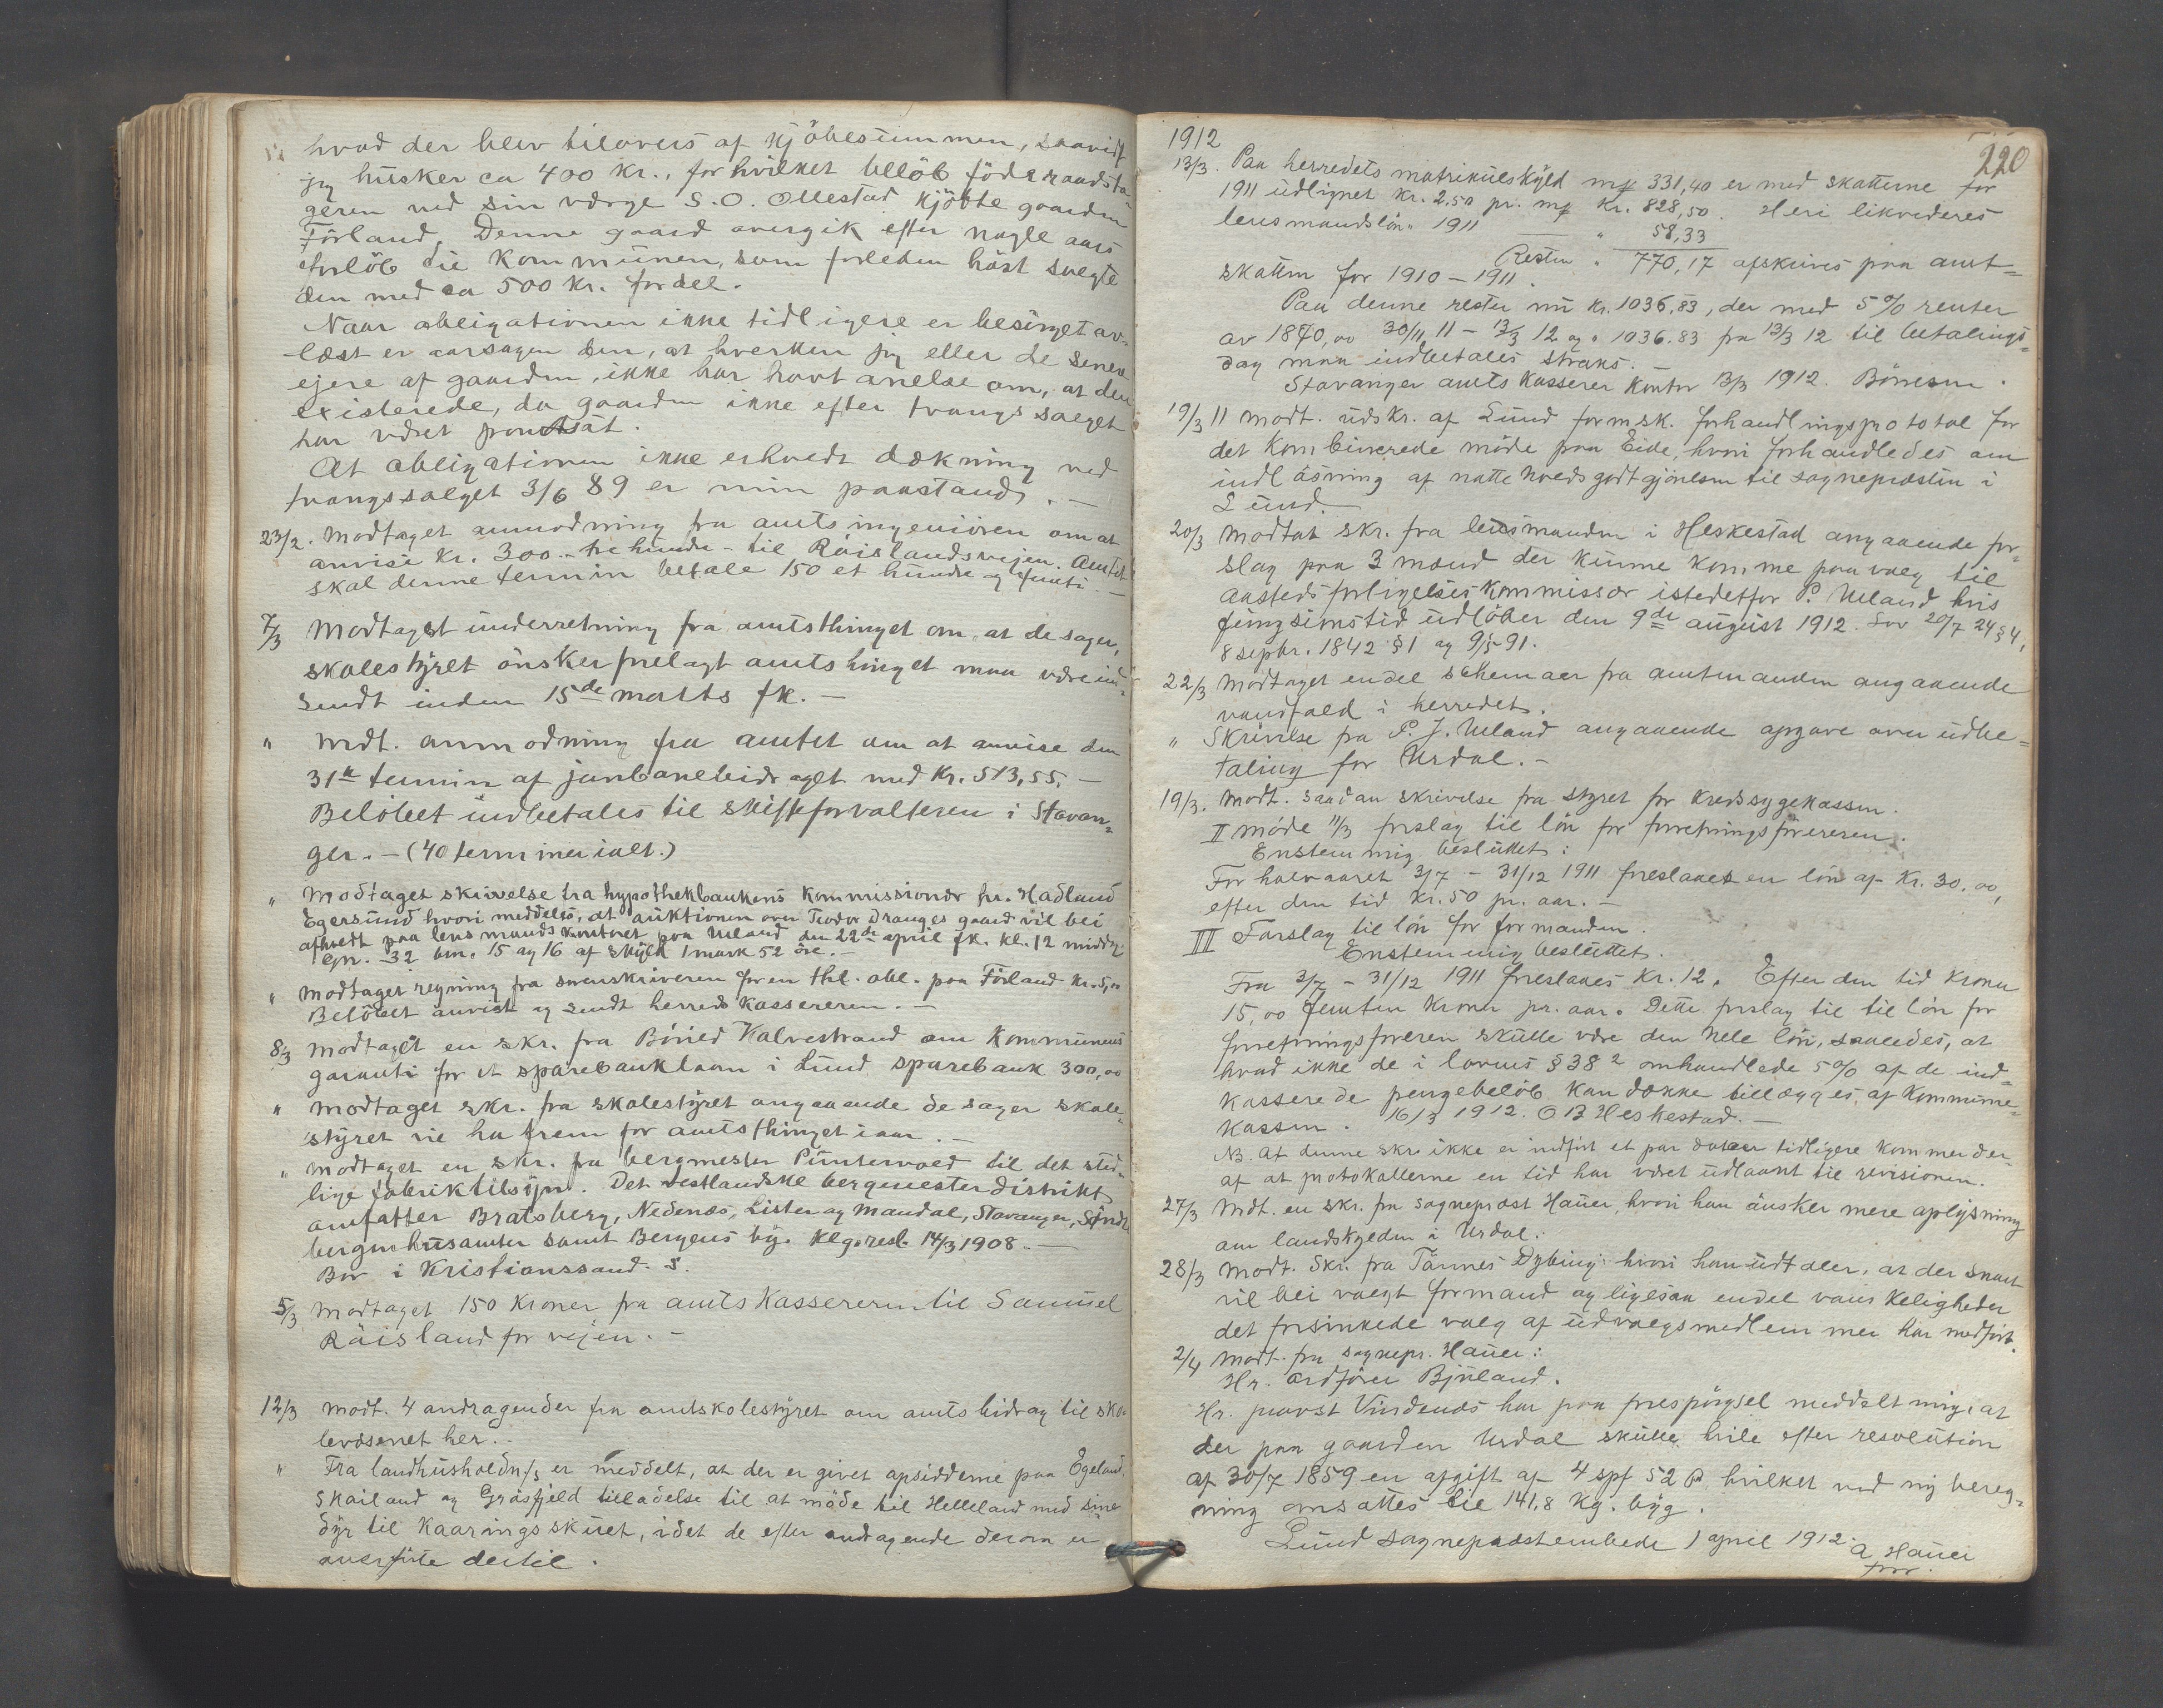 hvad der blev tilovers af kjöbesummen, saavidt
jeg husker ca 400 kr., for hvilket belöb föderaadsta-
geren ved sin værge S. O. Ollestad kjöbte gaarden
Förland. Denne gaard overgik efter nogle aars
forlöb til kommunen, som forleden höst solgte
den med ca 500 kr. fordel.
Naar obligationen ikke tidligere er besörget av-
læst er aarsagen den, at hverken jeg eller de senere
ejere af gaarden, ikke har havt anelse om, at den
existerede, da gaarden ikke efter tvangssalget
har været pantsat.
At obligationen ikke erholdt dækning ved
tvangssalget 3/6 89 er min paastand. —
23/2. Modtaget anmodning fra amtsingeniören om at
anvise kr. 300.- tre hundre - til Röislandsvejen. Amtet
skal denne termin betale 150 et hundre og femti. —
7/3 Modtaget underretning fra amtsthinget om, at de sager,
skolestyret önsker forelagt amtsthinget maa være ind-
sendt inden 15de marts fk. —
" Mdt. anmodning fra amtet om at anvise den
31te termin af jernbanebidraget med Kr. 513,55. —
Belöbet indbetales til skifteforvalteren i Stavan=
ger. — (40 terminer ialt.)
" Modtaget skrivelse fra hypothekbankens kommissionær hr. Hadland
Egersund hvori meddeles, at auktionen over Teodor Dranges gaard vil bli
afholdt paa lensmandskontoret paa Ueland den 22de april fk. kl. 12 middag.
Gn. 32 bn. 15 og 16 af skyld 1 mark 52 öre. —
" Modtaget regning fra sorenskriveren for en thl. obl. paa Förland kr. 5,00
Belöbet anvist og sendt herredskassereren. —
8/3 Modtaget en skr. fra Böned Kalvestrand om kommunens
garanti for et sparebanklaan i Lund sparebank 300,00
" Modtaget skr. fra skolestyret angaaende de sager skole-
styret vil ha frem for amtsthinget iaar. —
" Modtaget en skr. fra bergmester Püntervold til det sted-
lige fabriktilsyn. Det vestlandske bergmesterdistrikt
omfatter Bratsberg, Nedenæs, Lister og Mandal, Stavanger, Söndr.
bergenhusamter samt Bergens by. Kgl. resl. 14/3 1908. —
Bor i Kristianssand. S.
5/3 Modtaget 150 kroner fra amtskassereren til Samuel
Röisland for vejen. —
12/3 Modt. 4 andragender fra amtskolestyret om amtsbidrag til sko-
levæsenet her. -
" Fra landhusholdn/s er meddelt, at der er givet opsidderne paa Egeland,
Skailand og Gråsfjeld tilladelse til at möde til Helleland med sine
dyr til kaaringsskuet, idet de efter andragende derom er
overförte dertil.
220
1912
13/3. Paa herredets matrikulskyld mk 331,40 er med skatterne for
1911 udlignet kr. 2,50 pr. mk kr. 828,50. Heri likvideres
lensmandslön 1911 — " 58,33
Resten " 770,17 afskrives paa amt=
skatten for 1910-1911.
Paa denne rester nu kr. 1036,83, der med 5% renter
av 1870,00 30/11 11 - 13/3 12 og " 1036.83 fra 13/3 12 til betalings=
dag maa indbetales straks. —
Stavanger amtskasserer kontor 13/3 1912. Bönesen.
19/3 11 Modt. udskr. af Lund formsk. forhandlingsprotokol for
det kombinerede möde paa Eide, hvori forhandledes om
indlösning af nattehvedsgodtgjörelsen til sognepræsten i
Lund. —
20/3 Modtat skr. fra lensmanden i Heskestad angaaende for-
slag paa 3 mænd der kunne komme paa valg til
aastedsforligelseskommissær istedetfor P. Ueland hvis
fungsionstid udlöber den 9de august 1912. Lov 20/7 24 § 4,
8 septbr. 1842 § 1 og 9/5 91.
22/3 Modtaget endel schemaer fra amtmanden angaaende
vandfald i herredet.
" Skrivelse fra P. J. Ueland angaaende opgave over udbe=
taling for Urdal. —
19/3. Modt. saadan skrivelse fra styret for kredssygekassen.
II möde 11/3 forslag til lön for forretningsföreren.
Enstemmig besluttet:
For halvaaret 3/7 - 31/12 1911 foreslaaes en lön af Kr. 30.00,
efter den tid kr. 50 pr. aar. —
III Forslag til lön for formanden.
Enstemmig besluttet.
Fra 3/7 - 31/12 1911 foreslaaes kr. 12. Efter den tid kroner
15,00 femten kroner pr. aar. Dette forslag til til lön for
forretningsföreren skulle være den hele lön, saaledes, at
hvad ikke de i lovens § 38 2 omhandlede 5% af de ind-
kasserede pengebelöb kan dække tillægges af kommune-
kassen. 16/3 1912. O B Heskestad. —
NB. At denne skr. ikke er indfört et par datoer tidligere kommer der-
af at protokollerne en tid har været udlaant til revisionen.
27/3 Mdt. en skr. fra sognepræst Hauer, hvori han önsker mere oplysning
om landskylden i Urdal.
28/3 Modt. Skr. fra Tönnes Dybing hvori han udtaler, at der snart
vil bli valgt formand og ligesaa endel vanskeligheder
det forsinkede valg af udvalgsmedlemmer har medfört.
2/4 Modt. fra sognepr. Hauer:
Hr. ordförer Bjuland.
Hr. provst Vindenæs har paa forespörgsel meddelt mig, at
der paa gaarden Urdal skulle hvile efter resolution
af 30/7 1859 en afgift af 4 spf 52 β hvilket ved ny bereg-
ning ansattes til 141,8 kg. byg.
Lund sognepræstembede 1 april 1912. A Hauer